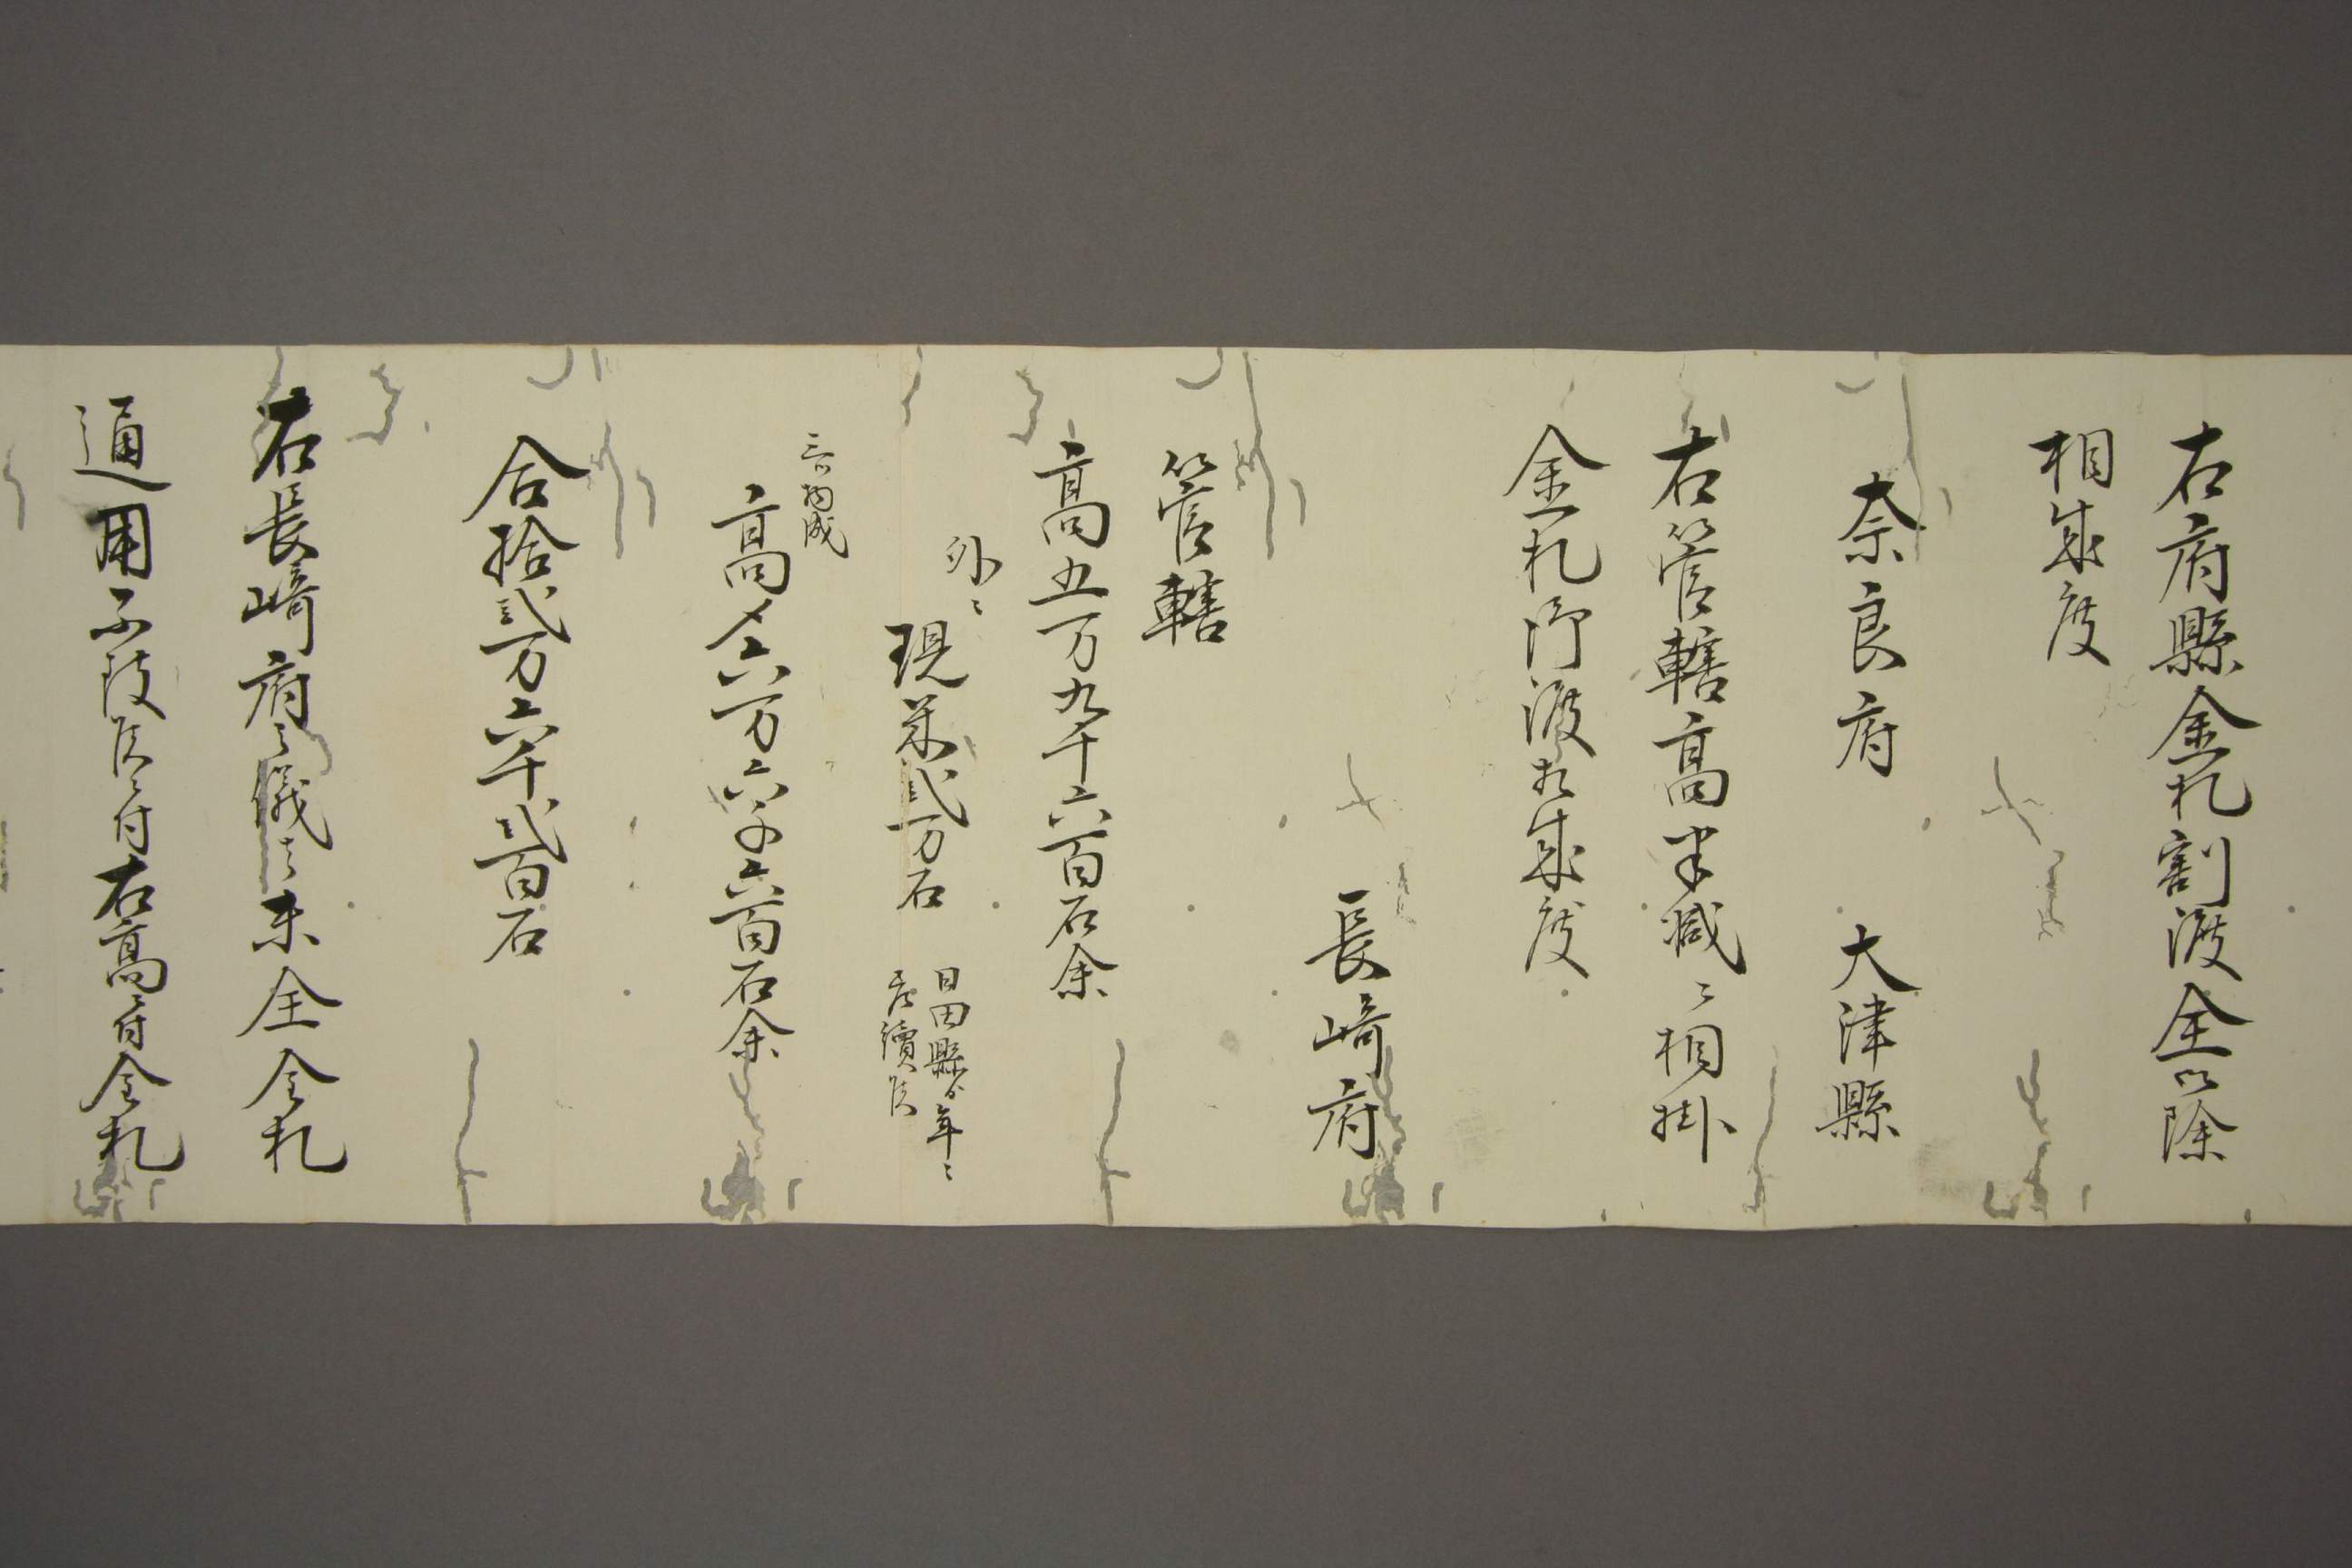 右府縣金札割渡全以除
相成度
奈良府　大津縣
右管轄高半減ニ相掛
金札御渡相成度
長崎府
管轄
高五万九千六百石余
外ニ
現米弐万石　日田縣ゟ年々
相續候
三ツ物成
高〆六万六千六百石余
合拾弐万六千弐百石
右長崎府之儀者未全金札
通用不致候ニ付右高ニ付金札